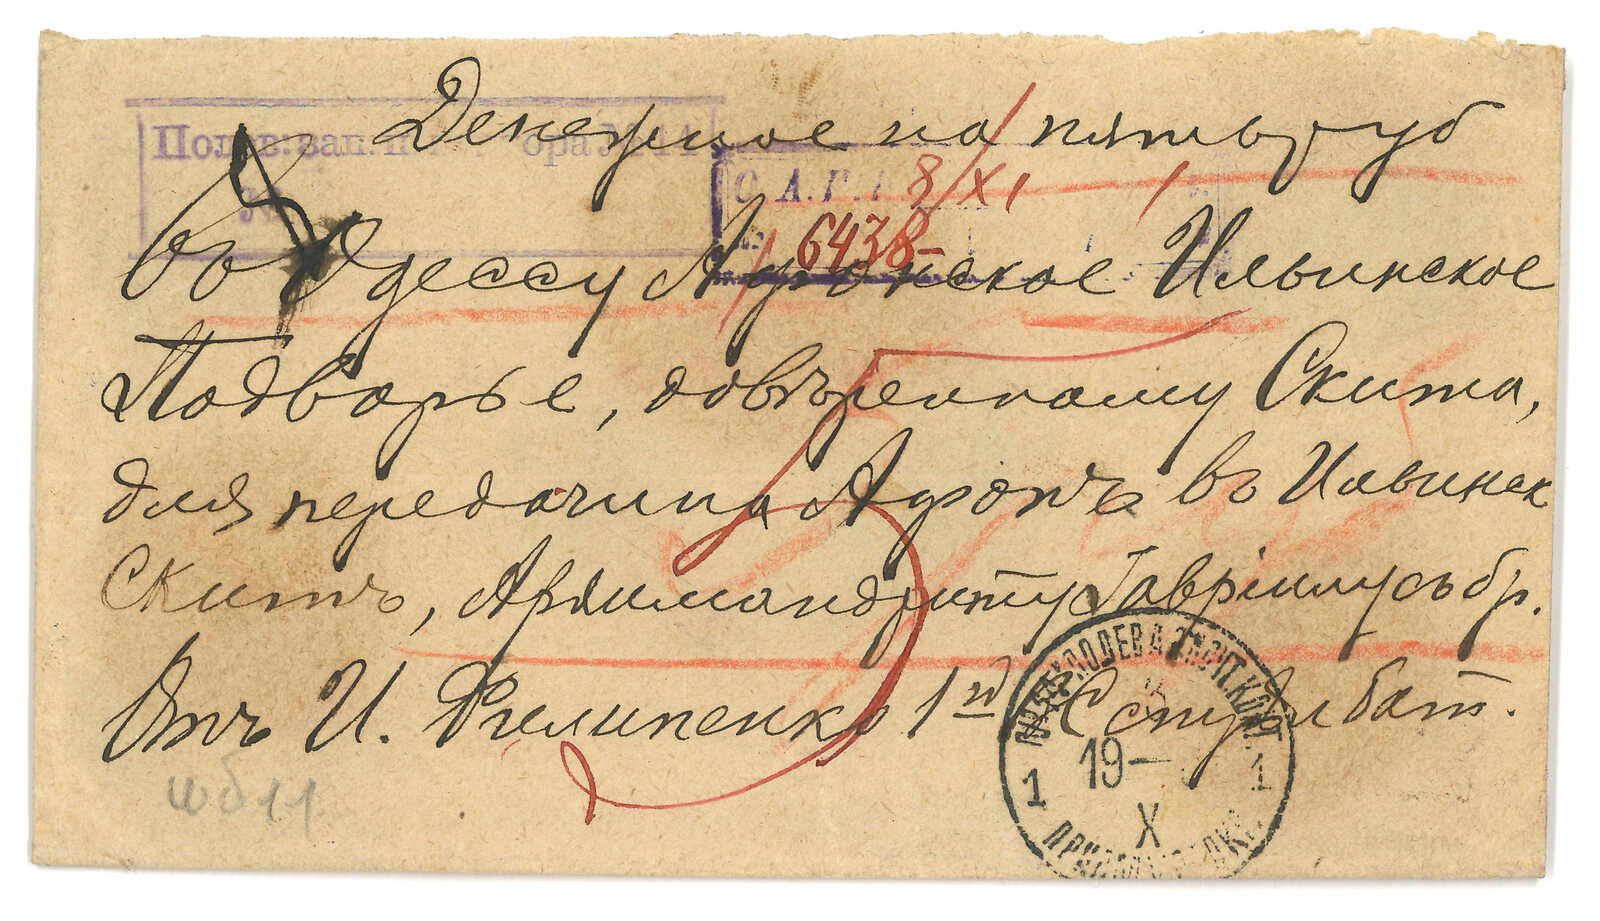 Денежное на пять руб
Полев: зап. ора № 11
№
С. А. Г. 8/XI
№ 6438-
въ Одессу Афонское Ильинское
Подворье, довѣренному Скита,
для передачи на Афонъ въ Ильинск
Скитъ, Архимандриту Гавріилу съ бр.
Отъ И. Филипенко 1й
бат.
1 19 — 1
X
шб 11